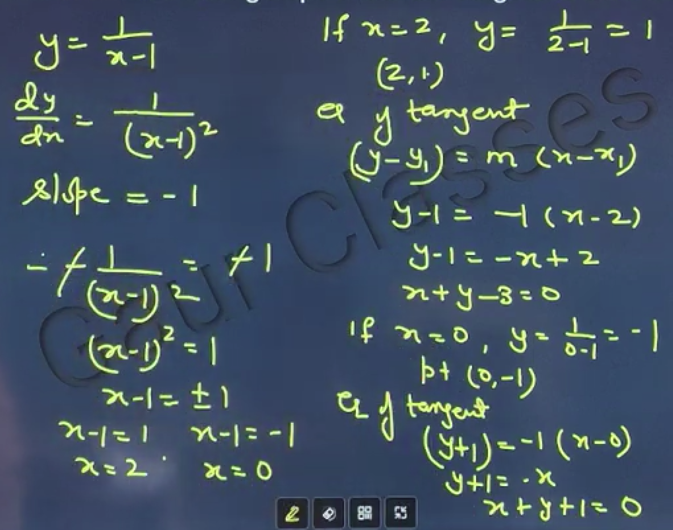 y = 1/(x-1)
dy/dx = 1/(x-1)²
slope = -1
-1/(x-1)² = -1
(x-1)² = 1
x-1 = ±1
x-1=1 x-1=-1
x=2 x=0
If x=2, y= 1/(2-1) = 1
(2,1)
eq of tangent
(y-y₁) = m (x-x₁)
y-1 = -1 (x-2)
y-1 = -x+2
x+y-3=0
If x=0, y= 1/(0-1) = -1
pt (0,-1)
eq of tangent
(y+1) = -1 (x-0)
y+1 = -x
x+y+1=0
Gaur Classes